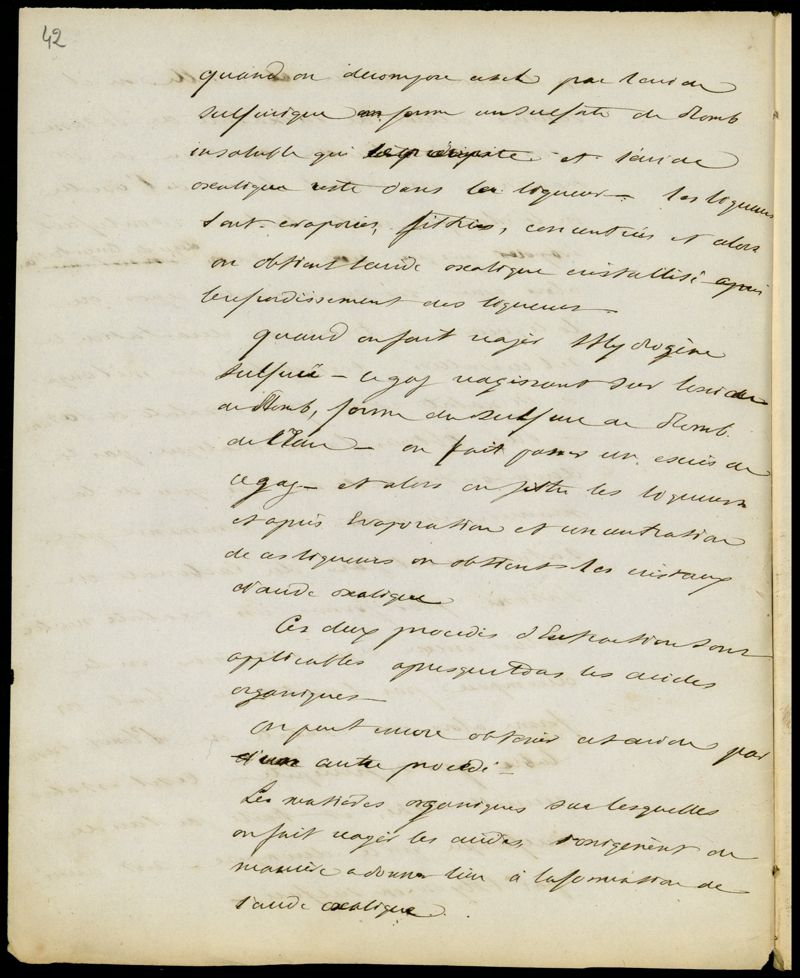 42
quand on decompose par l'acide
sulfurique on forme un sulfate de Plomb
insoluble qui se précipite et l'acide
oxalique reste dans la liqueur - les liqueurs
sont evaporées, filtrées, concentrées et alors
on obtient l'acide oxalique cristallisé après
le refroidissement des liqueurs -
quand on fait reagir l'Hydrogène
sulfuré - ce gaz reagissant sur l'oxide
de Plomb, forme du sulfure de Plomb
de l'Eau - on fait passer un excès de
ce gaz - et alors on filtre les liqueurs
et après Evaporation et concentration
de ces liqueurs on obtient les cristaux
d'acide oxalique
Ces deux procedés d'Extraction sont
applicables a presque tous les acides
organiques -
on peut encore obtenir cet acide par
autre procedé -
Les matières organiques sur lesquelles
on fait reagir les acides, s'oxigènent de
manière a donner lieu à la formation de
l'acide oxalique.